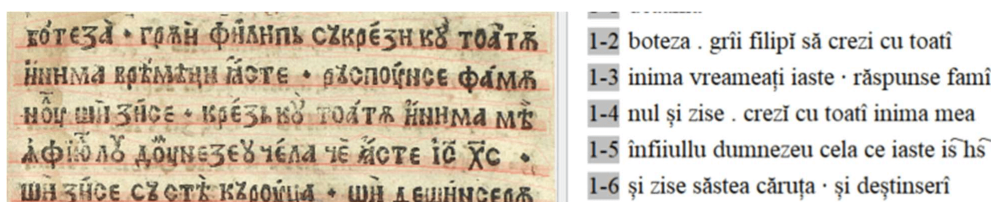 ботеза̀ · грѫи́ фи́липь съкре́зи кꙋ̀ тоа́тѫ
и́нима врѣ́мѣци ꙗ́сте · ръспоу́нсе фа́мѫ
ноу́л ши зи́се · кре́зь кꙋ̀ тоа́тѫ и́нима мѣ̀
че́ла чѐ ꙗ́сте і҃с х҃с ·
ши зи́се съ стѣ̀ къроу́ца · ши дещи́нсерѫ
1-2 boteza . grîi filipĭ să crezi cu toatî
1-3 inima vreameați iaste · răspunse famî
1-4 nul și zise . crezĭ cu toatî inima mea
1-5 înfiiullu dumnezeu cela ce iaste is͡ hs͡
1-6 și zise săstea căruța · și deștinserî